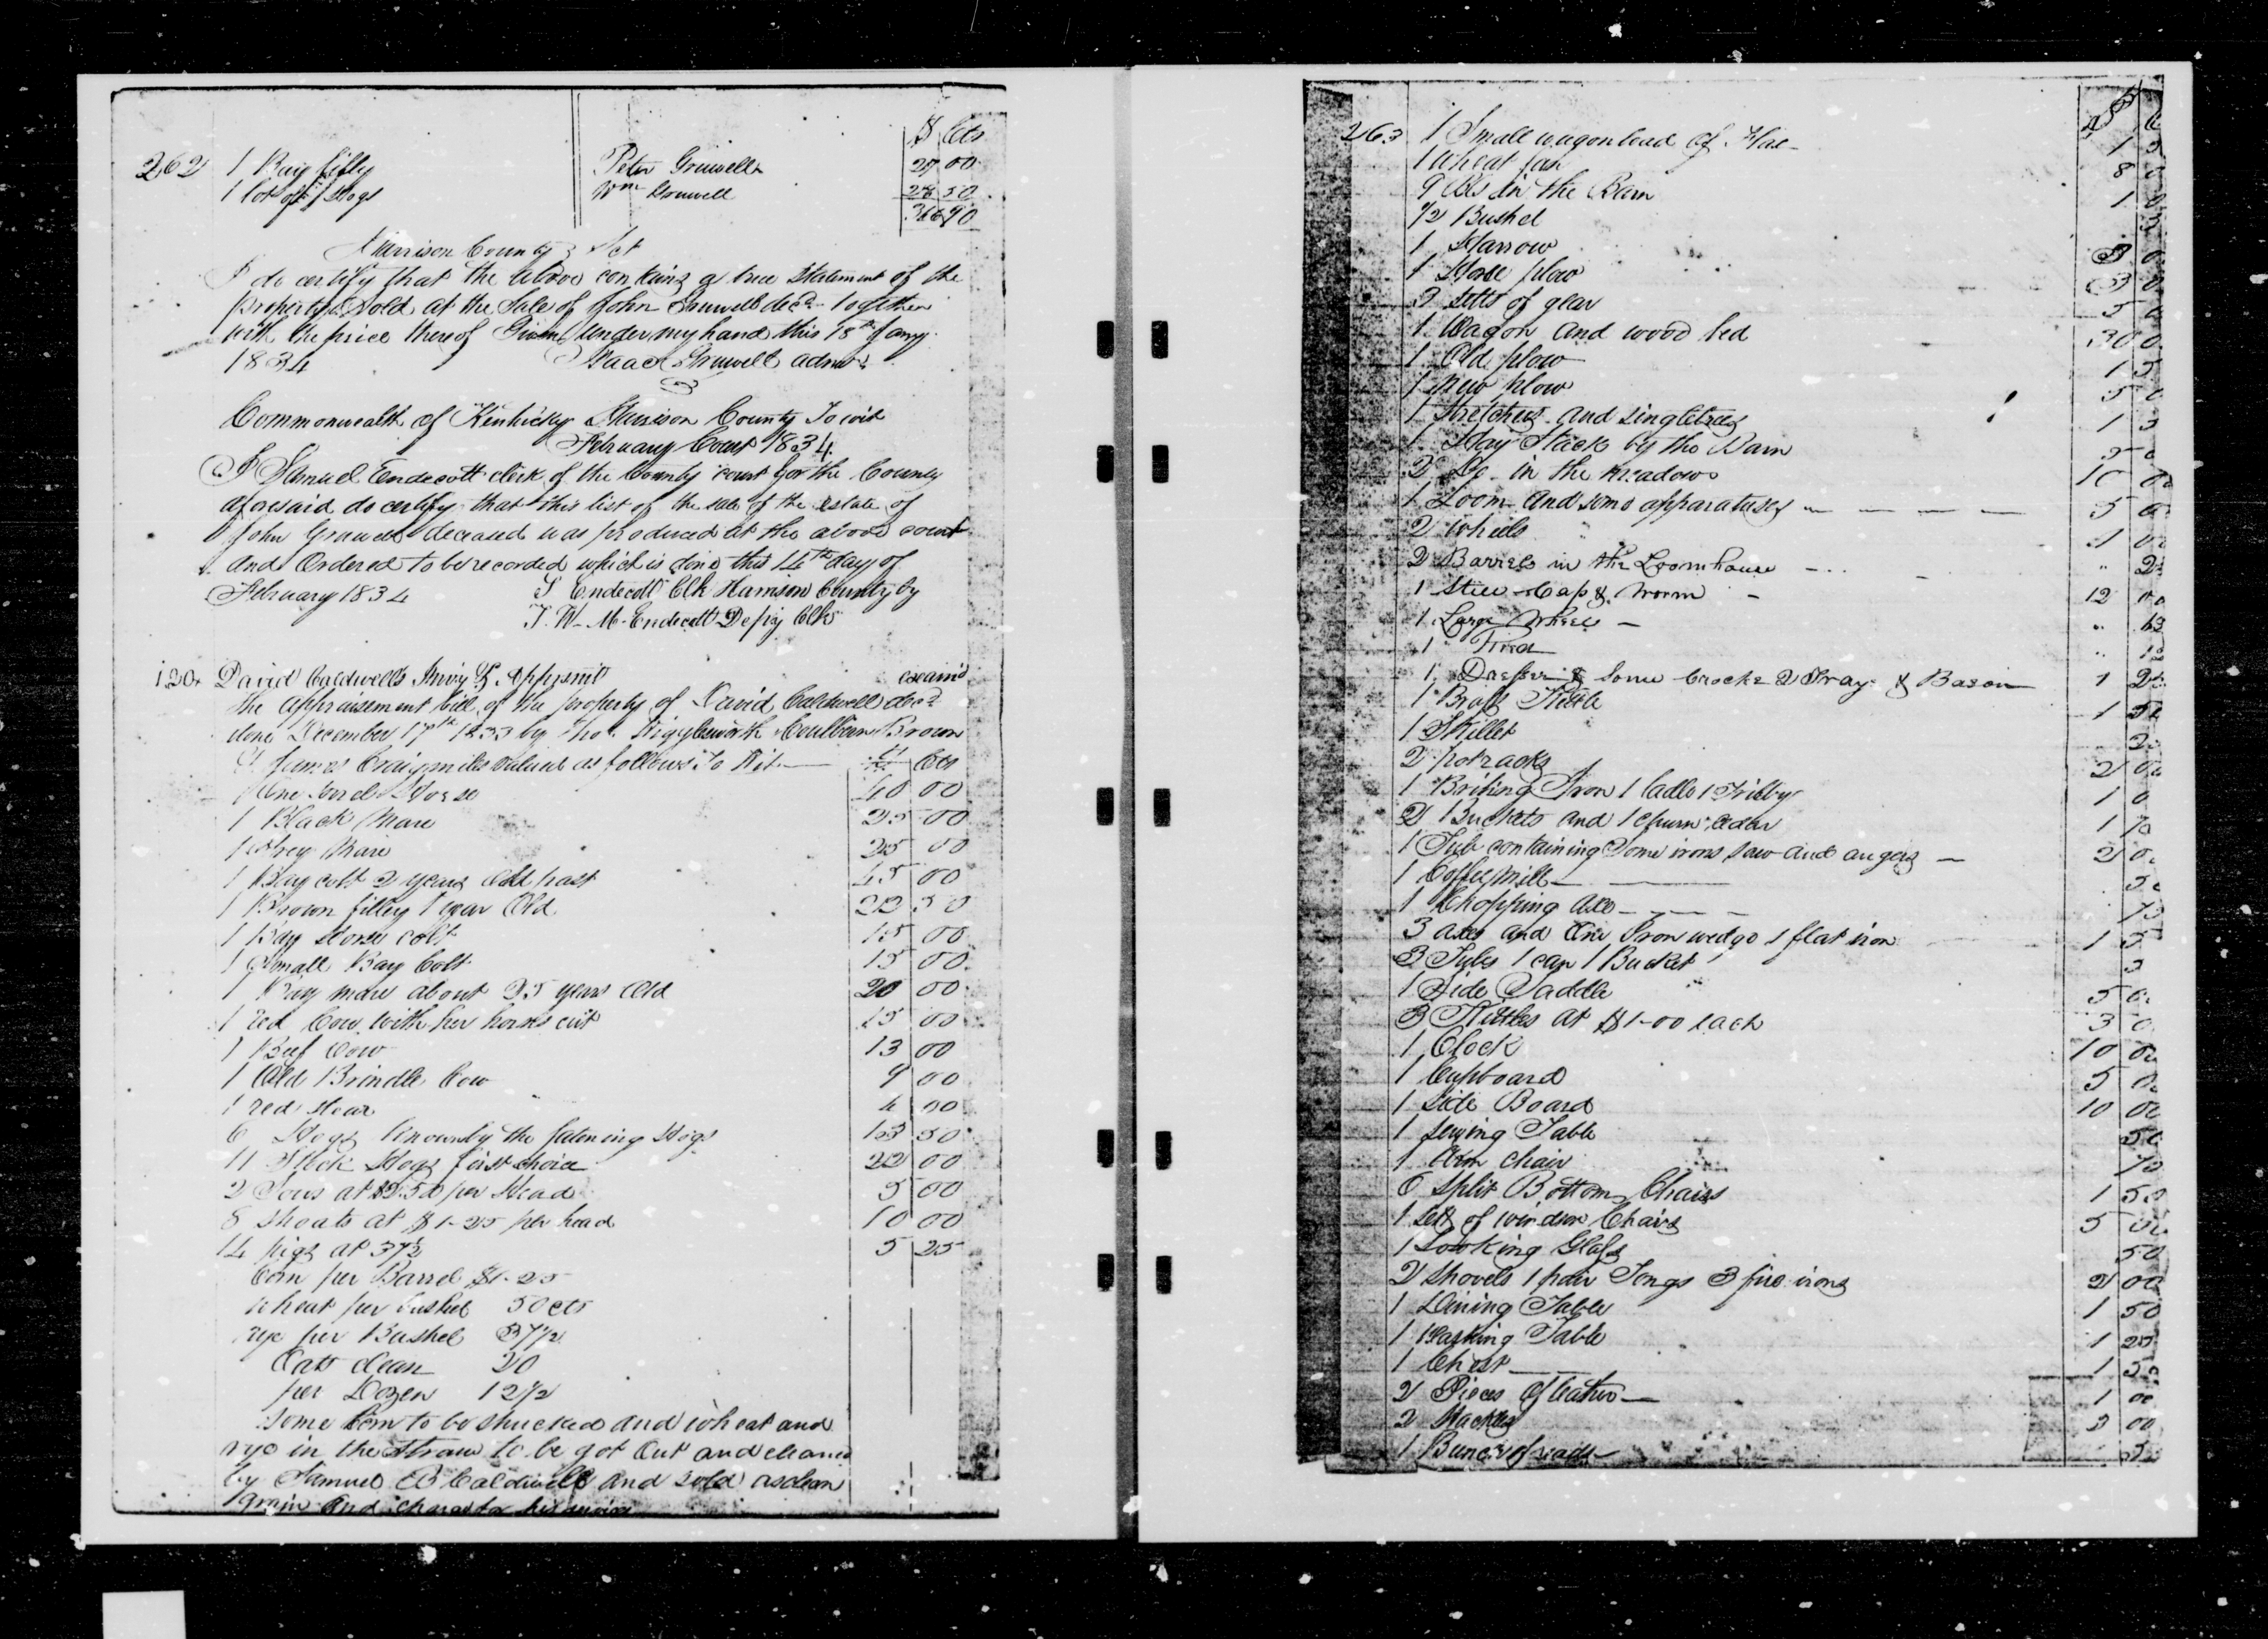 $ Cts
262 1 Bay filly Peter Gruwell 27 00
1 lot of Hogs Wm Gruwell 28 50
366 90
Harrison County Sct
I do certify that the above contains a true Statement of the
property Sold at the Sale of John Gruwell decd together
with the price thereof Given under my hand this 18th Jany
1834 Isaac Gruwell admr
Commonwealth of Kentucky Harrison County To wit
February Court 1834
I Samuel Endecott clerk of the County court for the County
aforesaid do certify that this list of the sale of the estate of
John Gruwell deceased was produced at the above court
and Ordered to be recorded which is done this 14th day of
February 1834 S Endecott Clk Harrison County by
T. W. M. Endecott Depty Clk
120 David Caldwells Invy & Appsmt examd
the appraisement bill of the property of David Caldwell decd
done December 17th 1833 by Thos Wigglesworth Coulburn Brown
& James Craigmiles valued as follows To Wit $ Cts
1 One Sorrel Horse 40 00
1 Black Mare 25 00
1 Grey Mare 25 00
1 Bay colt 2 years Old past 45 00
1 Brown filley 1 year Old 22 50
1 Bay Horse colt 15 00
1 Small Bay Colt 15 00
1 Bay mare about 25 years Old 20 00
1 red Cow with her horns cut 15 00
1 Beef Cow 13 00
1 Old Brindle Cow 9 00
1 red stear 4 00
6 Hogs known by the fatening Hogs 13 50
11 Stock Hogs first choice 22 00
2 Sows at $2.50 per Head 5 00
8 Shoats at $1-25 per head 10 00
14 pigs at 37½ 5 25
Corn per Barrel $1-25
wheat per bushel 50 cts
rye per Bushel 37½
Oats clean 20
per Dozen 12½
some Corn to be shucked and wheat and
rye in the straw to be got out and cleaned
by Samuel B Caldwell and sold as clean
grain and charge for his service
263 1 Small wagon load of 1
1 wheat fan 8
9 in the Barn 1
½ Bushel
1 Harrow 3
1 Horse plow 3
3 setts of gear 5
1 Wagon and wood bed 30 0
1 Old plow 1
1 New plow 5
1 Stretchers and singletrees 1
1 Hay Stack by the Barn 5
2 Do in the meadow 10 00
1 Loom and some apparatuses 5
2 Wheels 1
2 Barrels in the Loomhouse " 2
1 Still Cap & Worm 12 00
1 Large Wheel "
1 "
1 & some Crocks 2 Trays & Bason 1 2
1 Brass Kettle 1 5
1 Skillet
2 potracks 2
1 Iron 1 ladle 1 1 0
2 Buckets and 1 churn 1
1 Tub containing Some irons saw and augers 2 0
1 Coffey Mill 5
1 Chopping Axe
3 axes and One Iron wedge 1 flat iron 1 5
3 Tubs 1 can 1 Bucket
1 Side Saddle 5 0
3 Kittles at $1-00 each 3 0
1 Clock 10 00
1 Cupboard 5 0
1 Side Board 10 00
1 Table 50
1 Arm chair
6 Split Bottom Chairs 1 50
1 sett of windsor Chairs 5
1 Looking Glass 50
2 Shovels 1 pair Tongs 3 fire irons 2 00
1 Dining Table 1 50
1 Table 1 25
1 Chest 1
2 Pieces of leather 1 00
2 Hackles 3 00
1 Bunch of reads